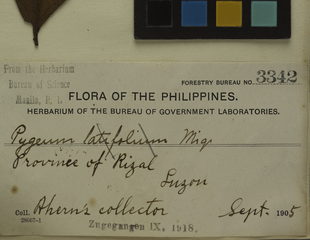 From the Herbarium
Bureau of Science
Manila, P. I.
FORESTRY BUREAU NO. 3342
FLORA OF THE PHILIPPINES.
HERBARIUM OF THE BUREAU OF GOVERNMENT LABORATORIES.
Pygeum latifolium Miq
Province of Rizal
Luzon
Coll. Ahern's collector Sept. 1905
28667-1
Zugegangen IX. 1918.